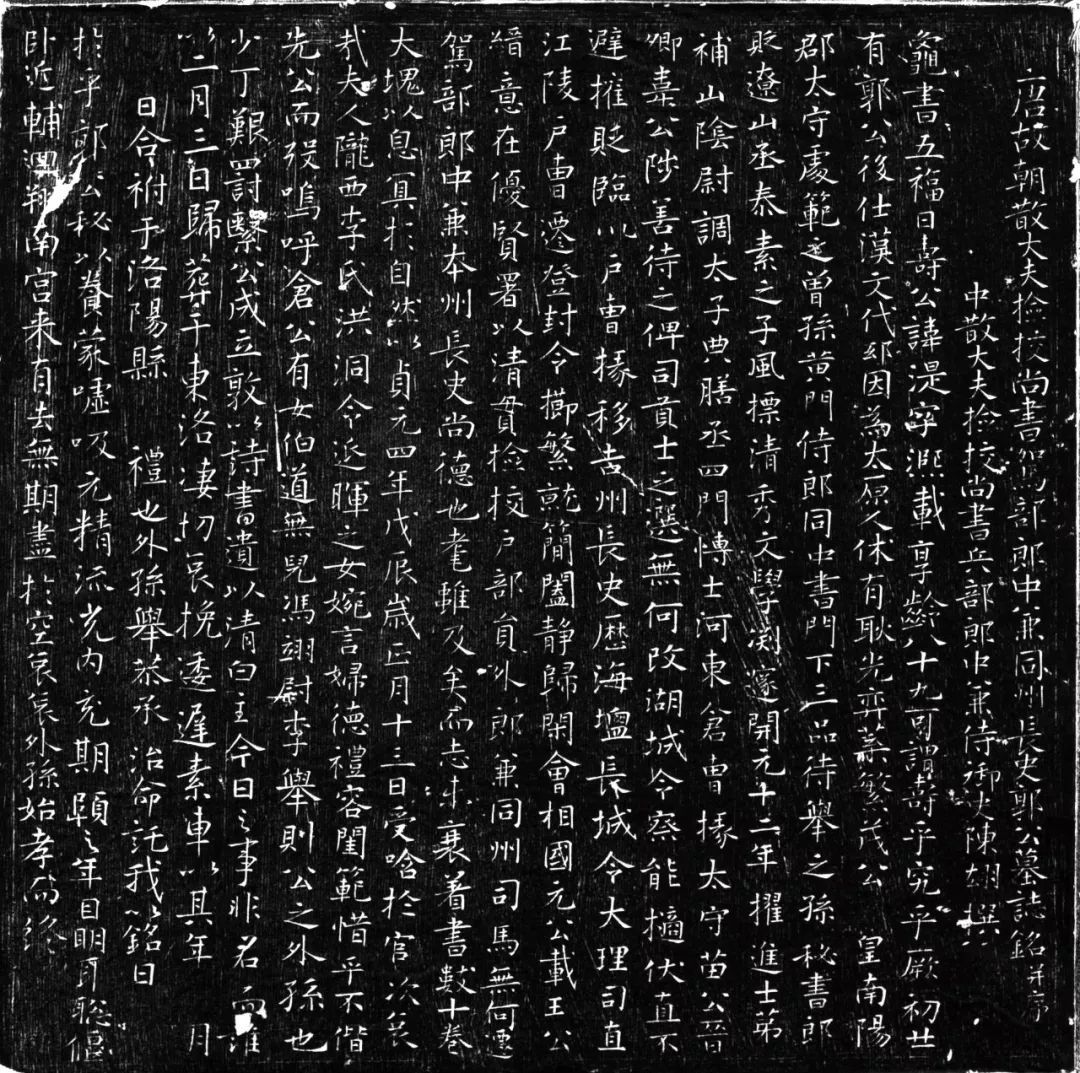 唐故朝散大夫檢校尚書駕部郎中兼同州長史郭公墓誌銘并序
中散大夫檢校尚書兵部郎中兼侍御史陳翃撰
龜書五福日壽公諱湜字澱載享齡八十九可謂壽乎究乎厥初廿
有郭公後仕漢文代邳因為太原人休有耿光弈葉繁茂公 皇南陽
郡太守處範之曾孫黃門侍郎同中書門下三品待舉之孫秘書郎
貶遼山丞泰素之子風標清秀文學淵邃開元十二年擢進士弟
補山陰尉調太子典膳丞四門博士河東倉曹掾太守苗公晉
卿裴公陟善待之俾司貢士之選無何改湖城令察能擿伏直不
避權貶臨川戶曹掾移吉州長史歷海塩長城令大理司直
江陵戶曹遷登封令擲繁就簡闔靜歸閑會相國元公載王公
縉意在優賢署以清貫檢校戶部員外郎兼同州司馬無何遷
駕部郎中兼本州長史尚德也耄雖及矣而志未衰著書數十卷
大塊以息冥於自然以貞元四年戊辰歲正月十三日受唅於官次哀
哉夫人隴西李氏洪洞令延暉之女婉言婦德禮容閨範惜乎不偕
先公而歿嗚呼倉公有女伯道無兒馮翊尉李舉則公之外孫也
少丁艱罰繫公成立敦以詩書遺以清白主今日之事非名而誰
以二月三日歸葬于東洛淒切哀挽逶遲素車以其年 月
日合祔于洛陽縣 禮也外孫舉恭承治命託我以銘曰
於乎郭公秘以養蒙噓吸元精流光內充期頤之年目明耳聰偃
臥近輔迴翔南宮来有去無期盡於空哀哀外孫始孝而終